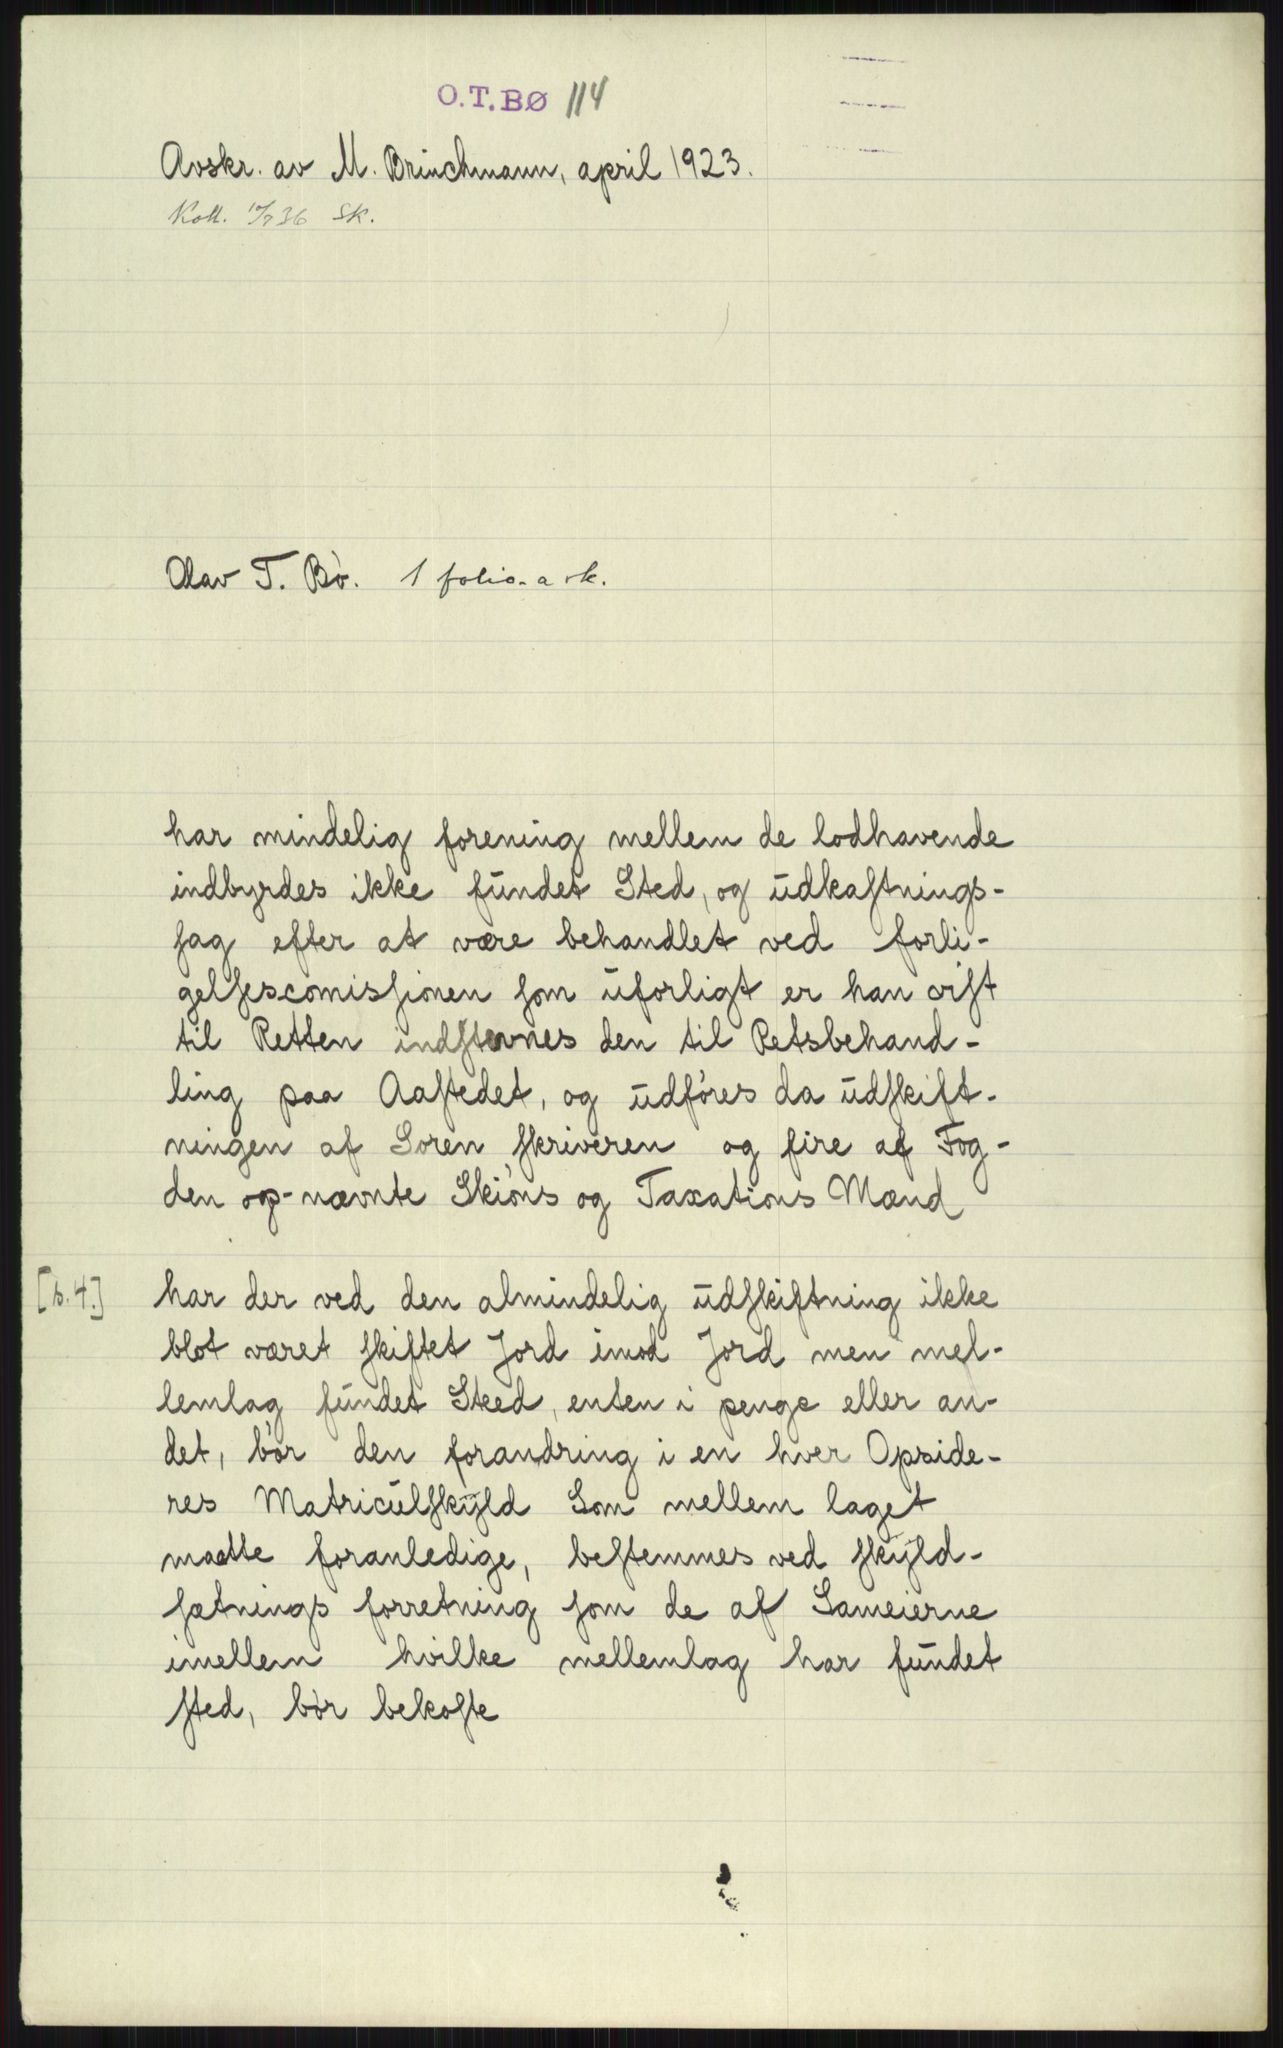 O.T.BØ 114
Avskr. av M. Brinchmann, april 1923.
Koll. 36 Sk.
Olav T. Bø. 1 folio-ark.
har mindelig forening mellem de lodhavende
indbyrdes ikke fundet Sted, og udkastnings-
sag efter at være behandlet ved forli-
gelsescomissionen som uforligt er han
til Retten indstevnes den til Retsbehand-
ling paa Aastedet, og udføres da udskift-
ningen af Soren skriveren og fire af Fog-
den op-nævnte Skiøns og Taxations Mænd
[s. 4.] har der ved den almindelig udskiftning ikke
blot været skiftet Jord imod Jord men mel-
lemlag fundet Steed, enten i penge eller an-
det, bør den forandring i en hver Opside-
res Matriculskyld Som mellem laget
maatte foranledige, bestemmes ved skyld-
sætnings forretning som de af Sameierne
imellem hvilke mellemlag har fundet
sted, bør bekoste